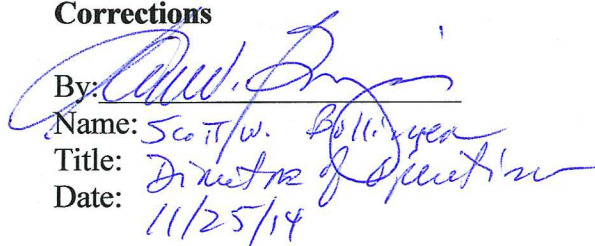 Corrections
By:
Name: Scott W. Bollinger
Title: Director of Operations
Date: 11/25/14